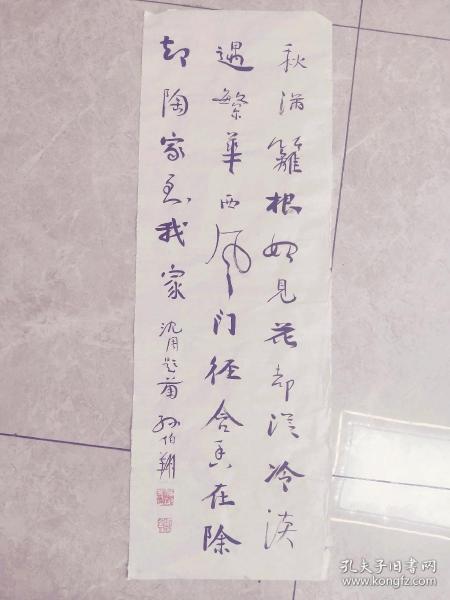 秋满篱根始见花却从冷淡
遇繁华西风门径含香在除
却陶家到我家
沈周题菊 孙伯翔
孔夫子旧书网
www.kongfz.com